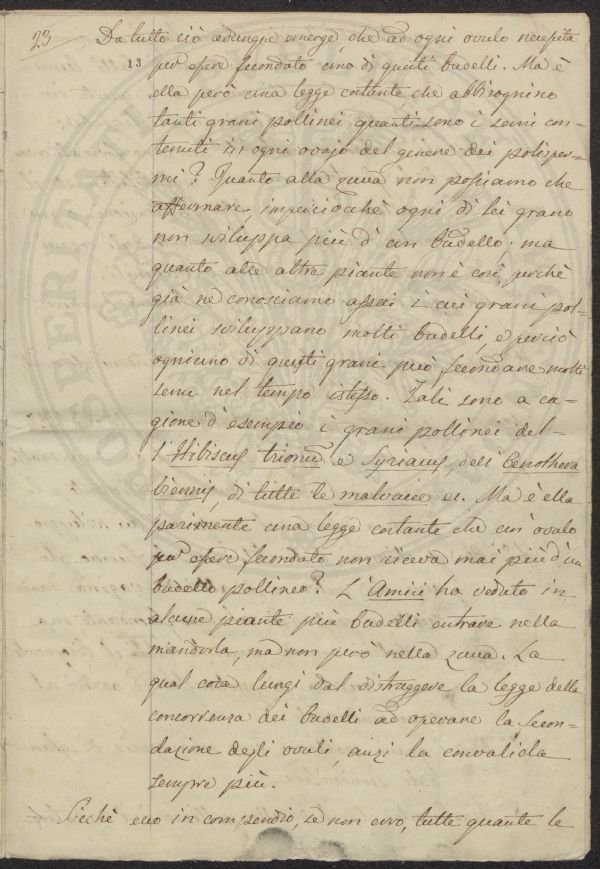 23
Da tutto ciò adunque emerge, che ad ogni ovulo necessita
13
per essere fecondato uno di questi budelli. Ma è
ella però una legge costante che abbisognino
tanti grani pollinei quanti sono i semi con-
tenuti in ogni ovajo del genere dei polisper-
mi? Quanto alla zucca non possiamo che
affermare, imperciocchè ogni di lei grano
non sviluppa più d'un budello: ma
quanto alle altre piante non è così, perchè
già ne conosciamo assai i cui grani pol-
linei sviluppano molti budelli, e perciò
ognuno di questi grani può fecondare molti
semi nel tempo istesso. Tali sono a ca-
gione d'esempio i grani pollinei del-
l'Hibiscus trionum e Syriacus, dell'Oenothera
biennis, di tutte le malvacee ec. Ma è ella
parimente una legge costante che un ovulo
per essere fecondato non riceva mai più d'un
budello pollineo? L'Amici ha veduto in
alcune piante più budelli entrare nella
mandorla, ma non però nella zucca. La
qual cosa lungi dal distruggere la legge della
concorrenza dei budelli ad operare la fecon-
dazione degli ovuli, anzi la convalida
sempre più.
Sicchè ecco in compendio, se non erro, tutte quante le
PROSPERITATI